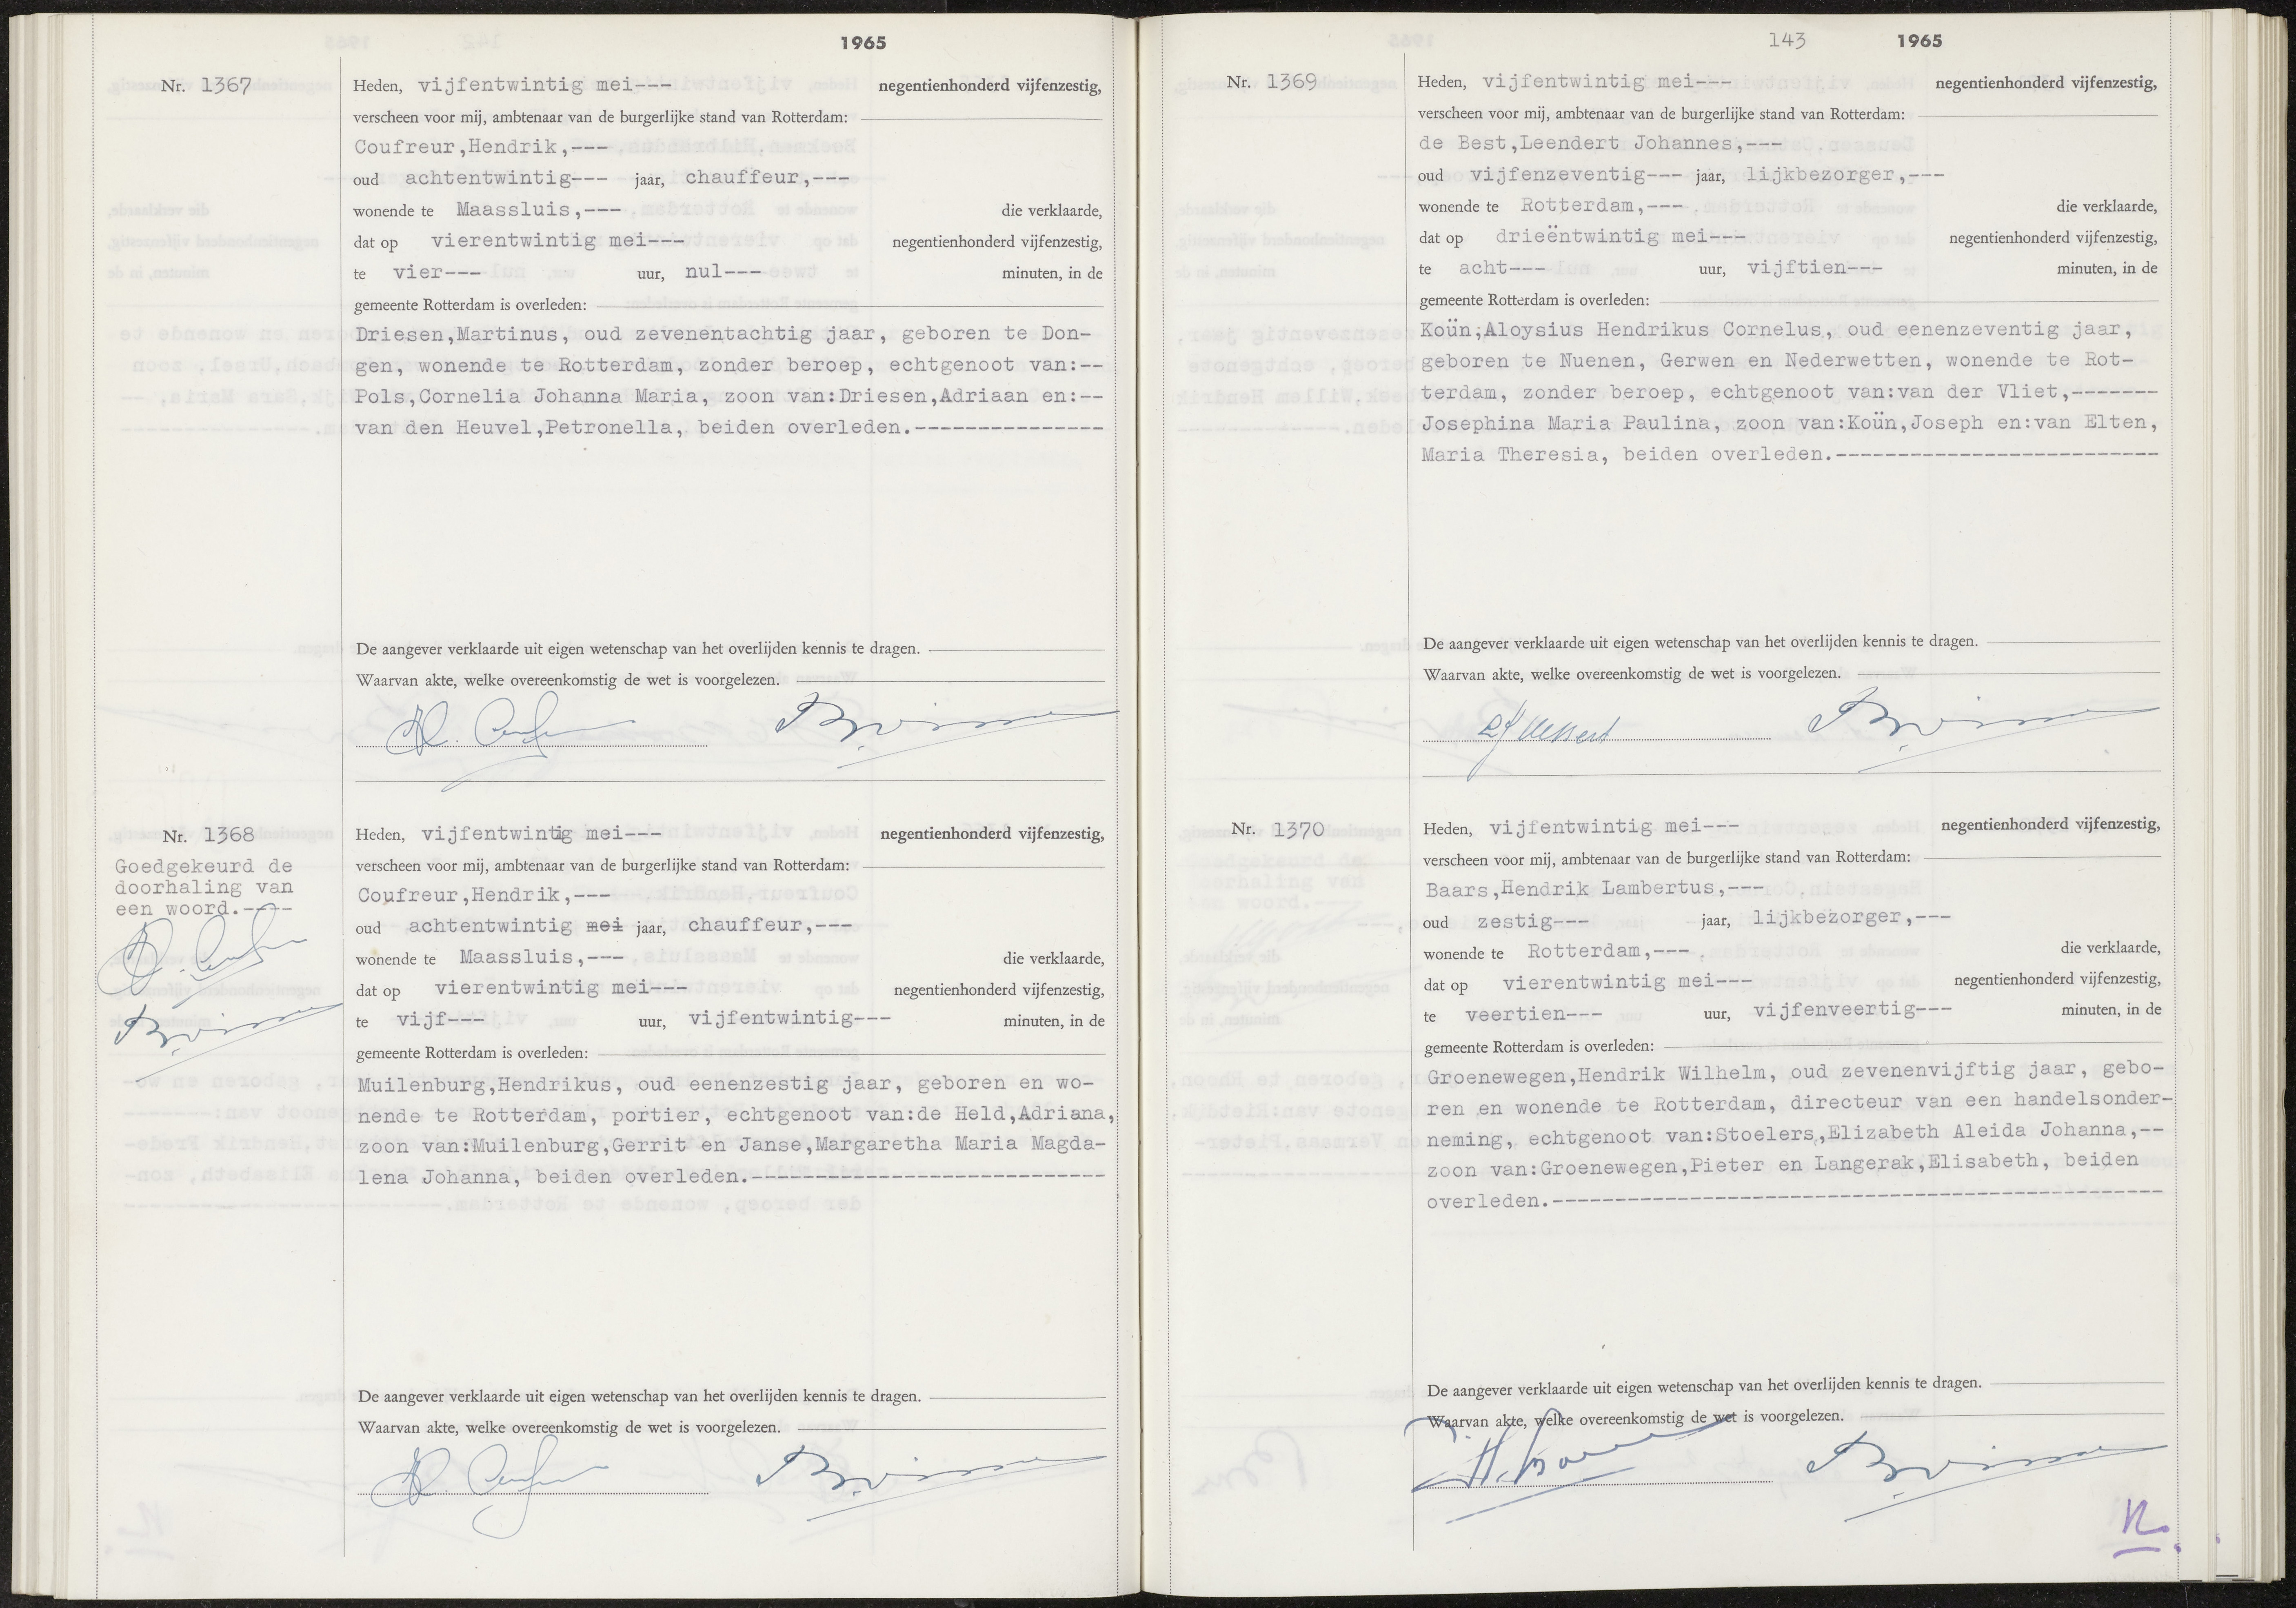 1965
Nr. 1367
Heden, vijfentwintig mei--- negentienhonderd vijfenzestig,
verscheen voor mij, ambtenaar van de burgerlijke stand van Rotterdam:
Coufreur,Hendrik,---
oud achtentwintig--- jaar, chauffeur,---
wonende te Maassluis,--- die verklaarde,
dat op vierentwintig mei--- negentienhonderd vijfenzestig,
te vier--- uur, nul--- minuten, in de
gemeente Rotterdam is overleden:
Driesen,Martinus, oud zevenentachtig jaar, geboren te Don-
gen, wonende te Rotterdam, zonder beroep, echtgenoot van:--
Pols,Cornelia Johanna Maria, zoon van:Driesen,Adriaan en:--
van den Heuvel,Petronella, beiden overleden.---------------
De aangever verklaarde uit eigen wetenschap van het overlijden kennis te dragen.
Waarvan akte, welke overeenkomstig de wet is voorgelezen.
Nr. 1368
Goedgekeurd de
doorhaling van
een woord.----
Heden, vijfentwintig mei--- negentienhonderd vijfenzestig,
verscheen voor mij, ambtenaar van de burgerlijke stand van Rotterdam:
Coufreur,Hendrik,---
oud achtentwintig mei jaar, chauffeur,---
wonende te Maassluis,--- die verklaarde,
dat op vierentwintig mei--- negentienhonderd vijfenzestig,
te vijf--- uur, vijfentwintig--- minuten, in de
gemeente Rotterdam is overleden:
Muilenburg,Hendrikus, oud eenenzestig jaar, geboren en wo-
nende te Rotterdam, portier, echtgenoot van:de Held,Adriana,
zoon van:Muilenburg,Gerrit en Janse,Margaretha Maria Magda-
lena Johanna, beiden overleden.----------------------------
De aangever verklaarde uit eigen wetenschap van het overlijden kennis te dragen.
Waarvan akte, welke overeenkomstig de wet is voorgelezen.
143 1965
Nr. 1369
Heden, vijfentwintig mei--- negentienhonderd vijfenzestig,
verscheen voor mij, ambtenaar van de burgerlijke stand van Rotterdam:
de Best,Leendert Johannes,---
oud vijfenzeventig--- jaar, lijkbezorger,---
wonende te Rotterdam,--- die verklaarde,
dat op drieëntwintig mei--- negentienhonderd vijfenzestig,
te acht--- uur, vijftien--- minuten, in de
gemeente Rotterdam is overleden:
Koün,Aloysius Hendrikus Cornelus, oud eenenzeventig jaar,
geboren te Nuenen, Gerwen en Nederwetten, wonende te Rot-
terdam, zonder beroep, echtgenoot van:van der Vliet,-------
Josephina Maria Paulina, zoon van:Koün,Joseph en:van Elten,
Maria Theresia, beiden overleden.--------------------------
De aangever verklaarde uit eigen wetenschap van het overlijden kennis te dragen.
Waarvan akte, welke overeenkomstig de wet is voorgelezen.
Nr. 1370
Heden, vijfentwintig mei--- negentienhonderd vijfenzestig,
verscheen voor mij, ambtenaar van de burgerlijke stand van Rotterdam:
Baars,Hendrik Lambertus,---
oud zestig--- jaar, lijkbezorger,---
wonende te Rotterdam,--- die verklaarde,
dat op vierentwintig mei--- negentienhonderd vijfenzestig,
te veertien--- uur, vijfenveertig--- minuten, in de
gemeente Rotterdam is overleden:
Groenewegen,Hendrik Wilhelm, oud zevenenvijftig jaar, gebo-
ren en wonende te Rotterdam, directeur van een handelsonder-
neming, echtgenoot van:Stoelers,Elizabeth Aleida Johanna,--
zoon van:Groenewegen,Pieter en Langerak,Elisabeth, beiden
overleden.-------------------------------------------------
De aangever verklaarde uit eigen wetenschap van het overlijden kennis te dragen.
Waarvan akte, welke overeenkomstig de wet is voorgelezen.